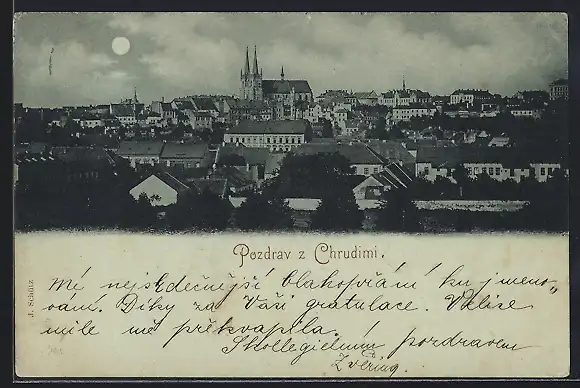 Pozdrav z Chrudimi.
J. Schütz
Mé nejsrdečnější blahopřání ku jmeno-
vání. Díky za Vaši gratulace. Velice
mile mě překvapila.
S kollegielním pozdravem